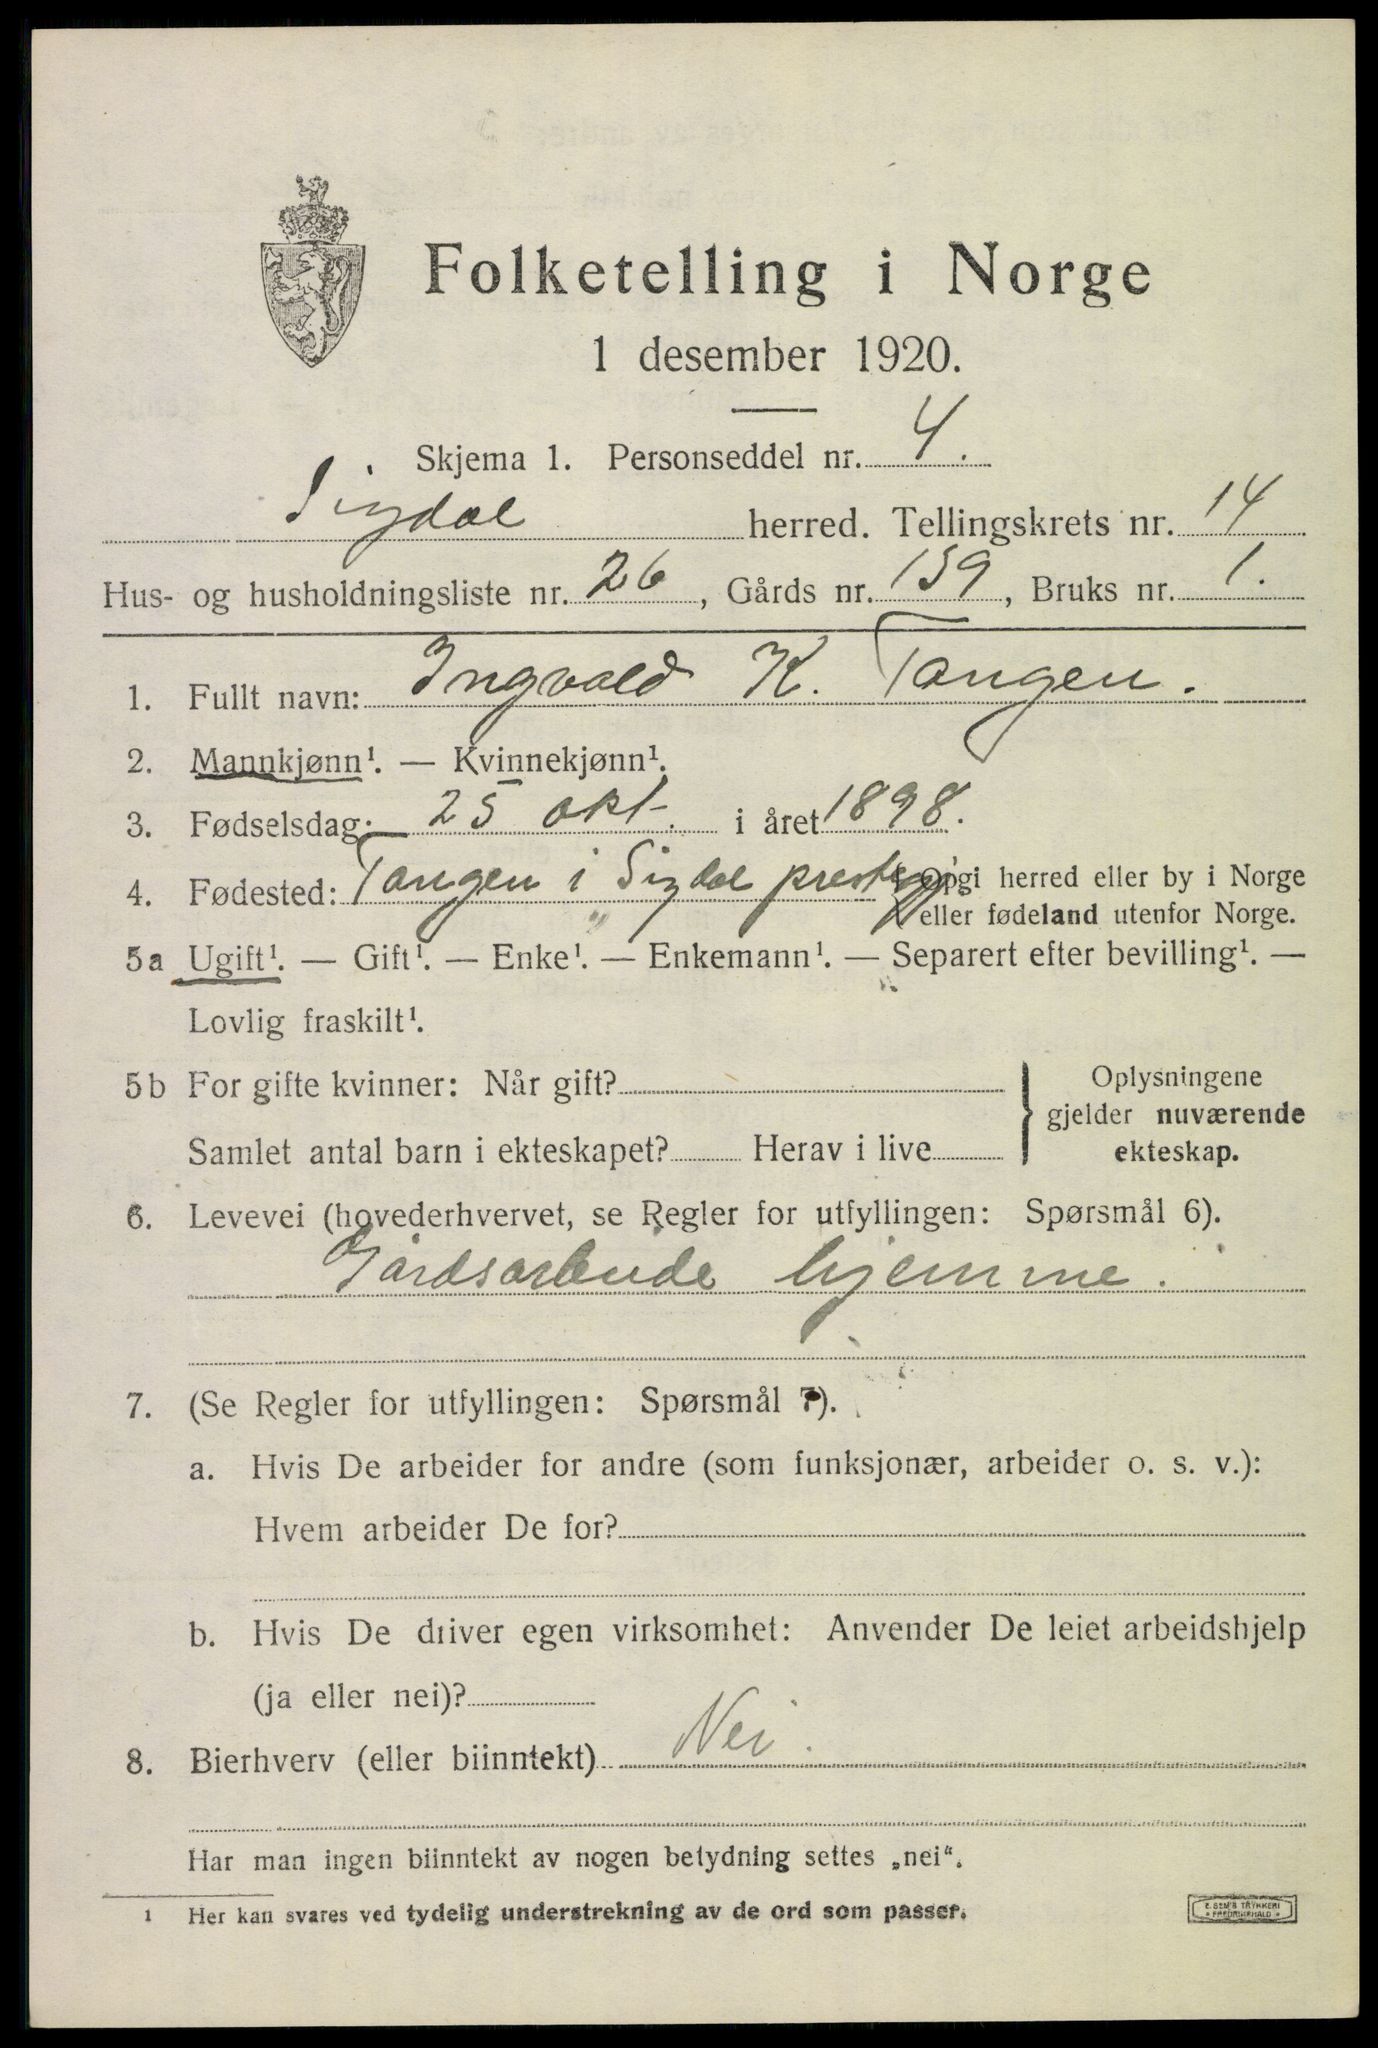 Folketelling i Norge
1 desember 1920.
Skjema 1. Personseddel nr. 4.
Sigdal herred. Tellingskrets nr. 14
Hus- og husholdningsliste nr. 26, Gårds nr. 159, Bruks nr. 1.
1. Fullt navn: Ingvald K. Tangen.
2. Mannkjønn¹. — Kvinnekjønn¹.
3. Fødselsdag: 25 okt. i året 1898.
4. Fødested: Tangen i Sigdal presteg. { Opgi herred eller by i Norge
eller fødeland utenfor Norge.
5a Ugift¹. — Gift¹. — Enke¹. — Enkemann¹. — Separert efter bevilling¹. —
Lovlig fraskilt¹.
5b For gifte kvinner: Når gift? } Oplysningene
gjelder nuværende
Samlet antal barn i ekteskapet? Herav i live ekteskap.
6. Levevei (hovederhvervet, se Regler for utfyllingen: Spørsmål 6).
Gårdsarbeide hjemme.
7. (Se Regler for utfyllingen: Spørsmål 7).
a. Hvis De arbeider for andre (som funksjonær, arbeider o. s. v.):
Hvem arbeider De for?
b. Hvis De driver egen virksomhet: Anvender De leiet arbeidshjelp
(ja eller nei)?
8. Bierhverv (eller biinntekt) Nei.
Har man ingen biinntekt av nogen betydning settes „nei“.
1 Her kan svares ved tydelig understrekning av de ord som passer.
E. SEM'S TRYKKERI
* FREDRIKSHALD *